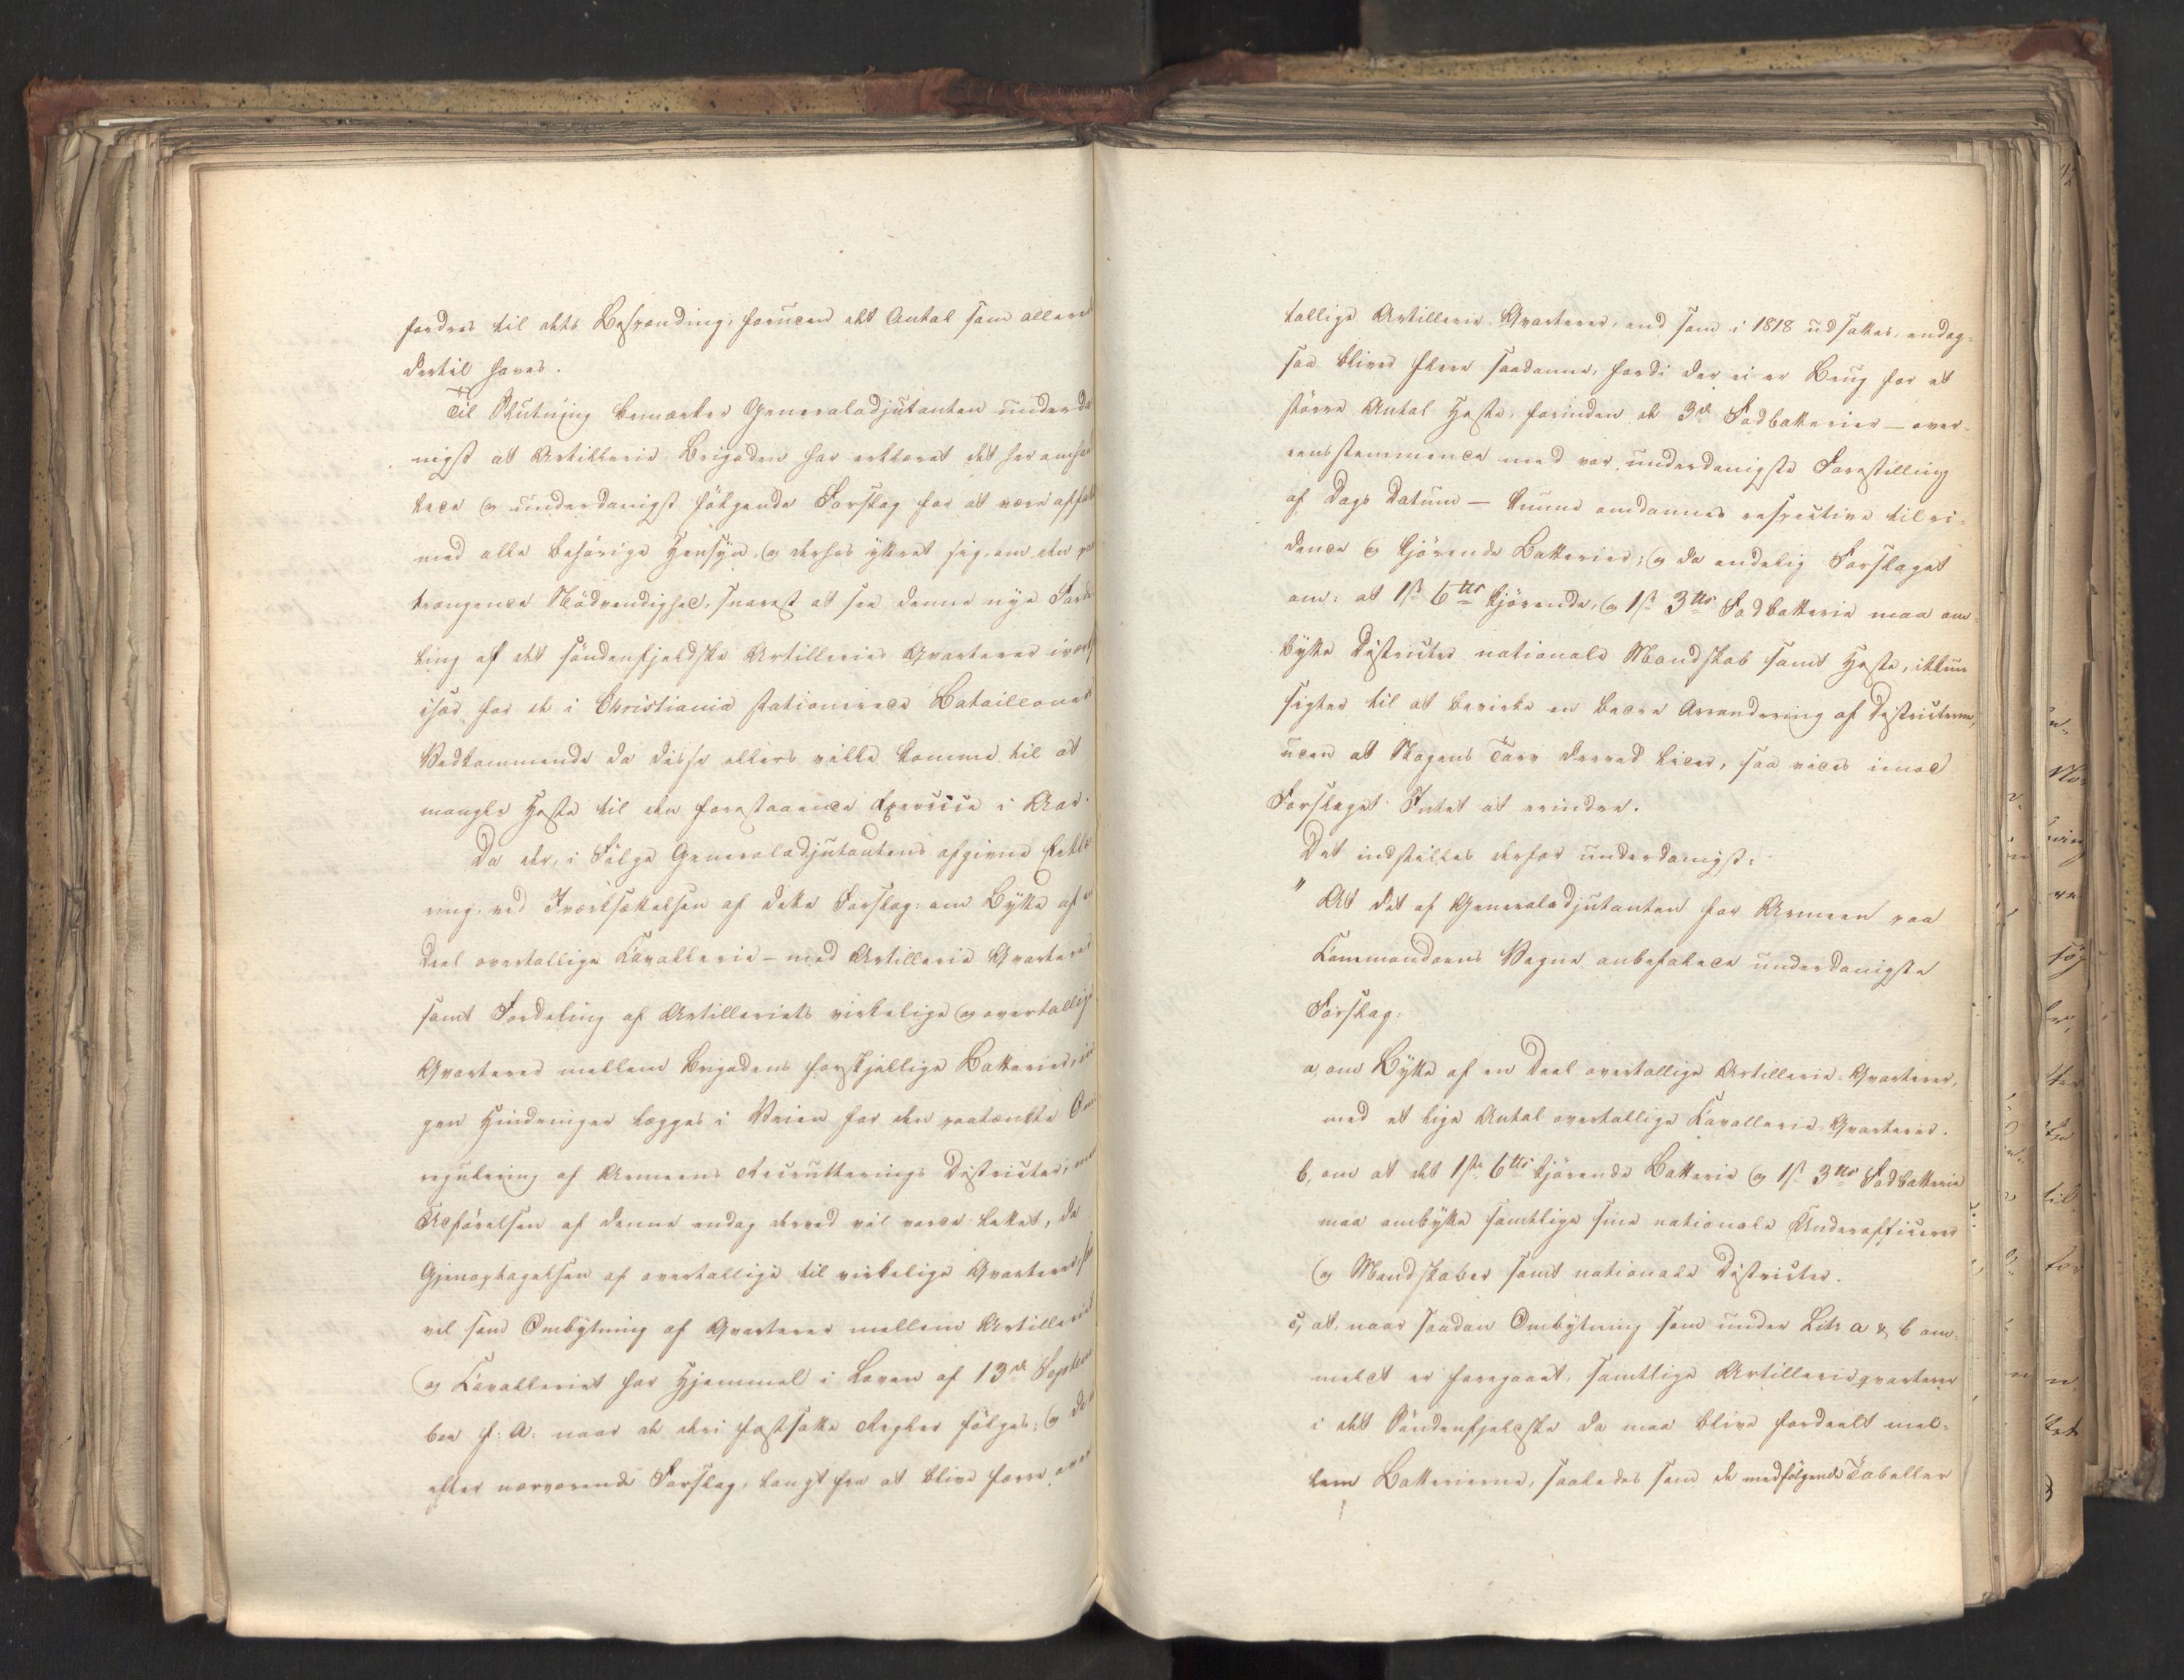 fordres til dets Bespænding, foruden det Antal som allere
dertil haves.
Til Slutning bemærker Generaladjutanten underda
nigst at Artillerie Brigaden har erklæret det her omhan
lede og underdanigst følgende Forslag for at være affat
med alle behørige Hensyn, og derhos yttret sig om den paa
trængende Nødvendighed, snarest at see denne nye Forde
ling af det søndenfjeldske Artilleries Qvarterer iværk
især for de i Christiania stationerede Batailloner
Vedkommende da disse ellers ville komme til at
mangle Heste til den forestaaende Exercise i Aar.
Da der, i Følge Generaladjutantens afgivne Erklæ
ring, ved Iværksættelsen af dette Forslag: om Bytte af en
Deel overtallige Cavallerie- med Artillerie Qvarterer
samt Fordeling af Artilleriets virkelige og overtallige
Qvarterer mellem Brigadens forskjellige Batterier, in
gen Hindringer lægges i Veien for den paatænkte Om
regulering af Armeens Recrutterings Districter, men
Udførelsen af denne endog derved vil vorde lettet, da
Gjenoptagelsen af overtallige til virkelige Qvarterer, saa
vel som Ombytning af Qvarterer mellem Artilleriet
og Cavalleriet har Hjemmel i Loven af 13de Septem
ber f: A: naar de deri fastsatte Regler følges; og da
efter nærværende Forslag, langt fra at blive færre over
tallige Artillerie Qvarterer, end som i 1818 udsattes, endog-
saa bliver flere saadanne, fordi der ei er Brug for et
større Antal Heste, forinden de 3de Fodbatterier — over-
eensstemmende med vor underdanigste Forestilling
af Dags Datum — kunne omdannes respective til ri-
dende og kjørende Batterier; og da endelig Forslaget
om: at 1ste 6tt's kjørende, og 1ste 3tt's Fodbatterie maa om-
bytte Districter nationale Mandskab samt Heste, ikkun
sigter til at bevirke en bedre Arrondering af Districterne,
uden at Nogens Tarv derved lider, saa vides imod
Forslaget Intet at erindre.
Det indstilles derfor underdanigst:
" At det af Generaladjutanten for Armeen paa
Commandoens Vegne anbefalede underdanigste
Forslag:
a, om Bytte af en Deel overtallige Artillerie-Qvarterer,
med et lige Antal overtallige Cavallerie-Qvarterer.
b, om at det 1ste 6tt's kjørende Batterie og 1ste 3tt's Fodbatterie
maa ombytte samtlige sine nationale Underofficerer
og Mandskaber samt nationale Districter.
c, at naar saadan Ombytning som under Litr a & b om-
meldt er foregaaet, samtlige Artillerieqvarterer
i det Søndenfjeldske da maa blive fordeelt mel-
lem Batterierne, saaledes som de medfølgende Tabeller